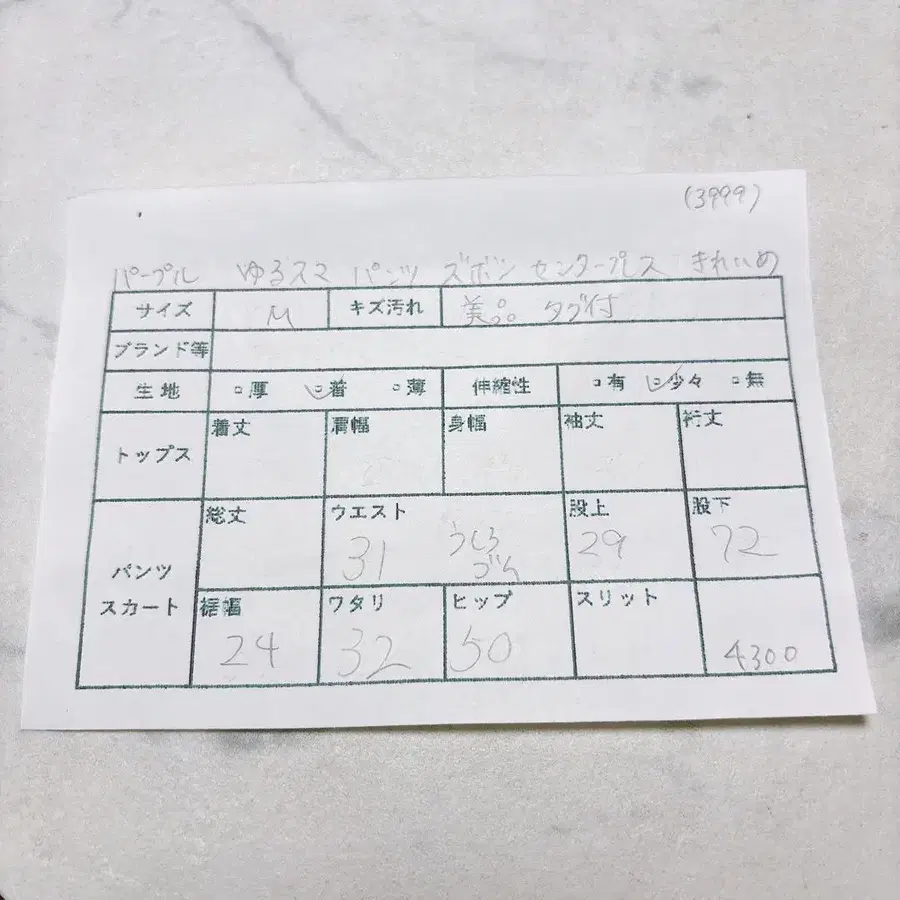 (3999)
パープル ゆるスマ パンツ ズボン センタープレス きれいめ
サイズ M キズ汚れ 美品 タグ付
ブランド等
生地 □厚 □着 □薄 伸縮性 □有 □少々 □無
トップス 着丈 肩幅 身幅 袖丈 裄丈
パンツ スカート
総丈 ウエスト 31 うしろ ゴム 股上 29 股下 72
裾幅 24 ワタリ 32 ヒップ 50 スリット 4300